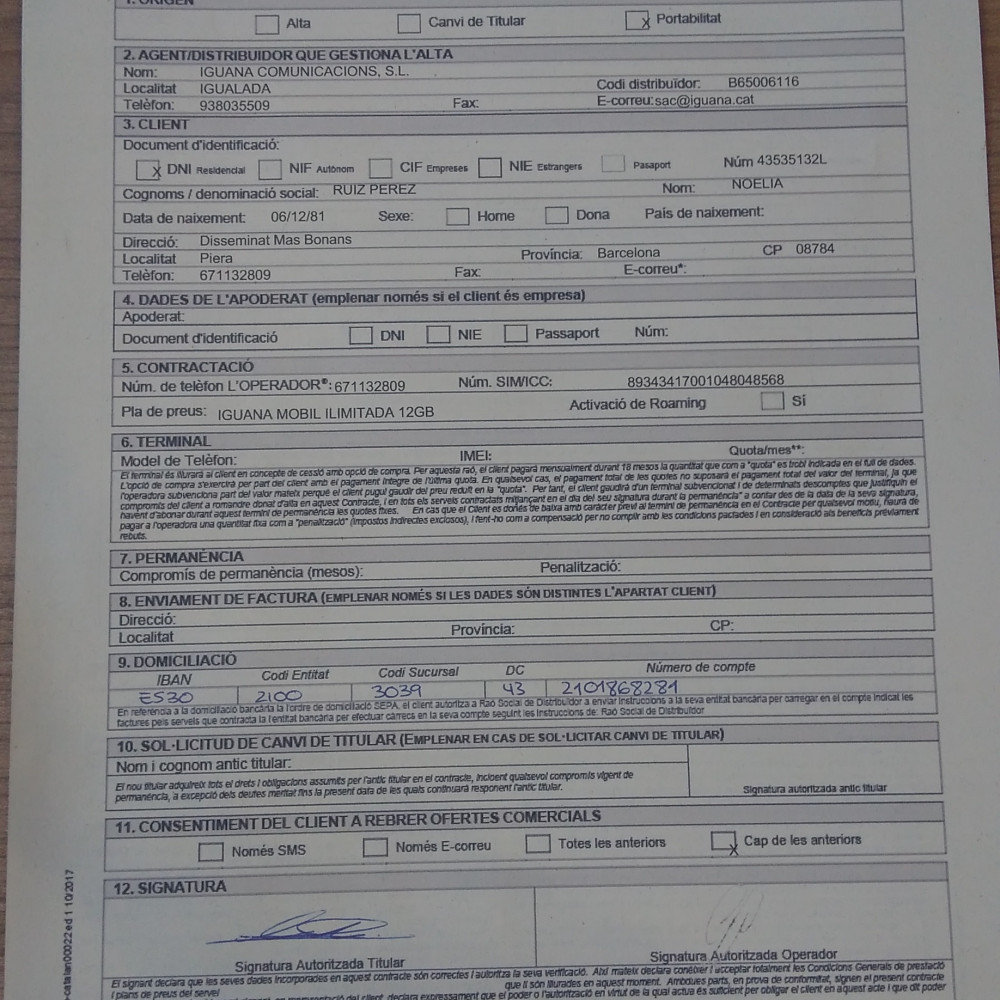 1. ORIGEN
Alta Canvi de Titular x Portabilitat
2. AGENT/DISTRIBUIDOR QUE GESTIONA L'ALTA
Nom: IGUANA COMUNICACIONS, S.L.
Localitat IGUALADA Codi distribuïdor: B65006116
Telèfon: 938035509 Fax: E-correu: sac@iguana.cat
3. CLIENT
Document d'identificació:
x DNI Residencial NIF Autònom CIF Empreses NIE Estrangers Pasaport Núm 43535132L
Cognoms / denominació social: RUIZ PEREZ Nom: NOELIA
Data de naixement: 06/12/81 Sexe: Home Dona País de naixement:
Direcció: Disseminat Mas Bonans
Localitat Piera Província: Barcelona CP 08784
Telèfon: 671132809 Fax: E-correu*:
4. DADES DE L'APODERAT (emplenar només si el client és empresa)
Apoderat:
Document d'identificació DNI NIE Passaport Núm:
5. CONTRACTACIÓ
Núm. de telèfon L'OPERADOR®: 671132809 Núm. SIM/ICC: 89343417001048048568
Pla de preus: IGUANA MOBIL ILIMITADA 12GB Activació de Roaming Sí
6. TERMINAL
Model de Telèfon: IMEI: Quota/mes**:
El terminal és lliurarà al client en concepte de cessió amb opció de compra. Per aquesta raó, el client pagarà mensualment durant 18 mesos la quantitat que com a "quota" es trobi indicada en el full de dades.
L'opció de compra s'exercirà per part del client amb el pagament íntegre de l'última quota. En qualsevol cas, el pagament total de les quotes no suposarà el pagament total del valor del terminal, ja que
l'operadora subvenciona part del valor mateix perquè el client pugui gaudir del preu reduït en la "quota". Per tant, el client gaudirà d'un terminal subvencionat i de determinats descomptes que justifiquin el
compromís del client a romandre donat d'alta en aquest Contracte, i en tots els serveis contractats mitjançant en el dia del seu signatura durant la permanència" a contar des de la data de la seva signatura,
havent d'abonar durant aquest termini de permanència les quotes fixes. En cas que el Client es donés de baixa amb caràcter previ al termini de permanència en el Contracte per qualsevol motiu, haurà de
pagar a l'operadora una quantitat fixa com a "penalització" (impostos indirectes exclosos), i fent-ho com a compensació per no complir amb les condicions pactades i en consideració als beneficis prèviament
rebuts.
7. PERMANÈNCIA
Compromís de permanència (mesos): Penalització:
8. ENVIAMENT DE FACTURA (EMPLENAR NOMÉS SI LES DADES SÓN DISTINTES L'APARTAT CLIENT)
Direcció:
Localitat Província: CP:
9. DOMICILIACIÓ
IBAN Codi Entitat Codi Sucursal DC Número de compte
ES30 2100 3039 43 2101868281
En referència a la domiciliació bancària la l'ordre de domiciliació SEPA, el client autoritza a Raó Social de Distribuïdor a enviar instruccions a la seva entitat bancària per carregar en el compte indicat les
factures pels serveis que contracta i a l'entitat bancària per efectuar càrrecs en la seva compte seguint les instruccions de: Raó Social de Distribuïdor
10. SOL·LICITUD DE CANVI DE TITULAR (EMPLENAR EN CAS DE SOL·LICITAR CANVI DE TITULAR)
Nom i cognom antic titular:
El nou titular adquireix tots el drets i obligacions assumits per l'antic titular en el contracte, incloent qualsevol compromís vigent de
permanència, a excepció dels deutes meritat fins la present data de les quals continuarà responent l'antic titular.
Signatura autoritzada antic titular
11. CONSENTIMENT DEL CLIENT A REBRER OFERTES COMERCIALS
Només SMS Només E-correu Totes les anteriors x Cap de les anteriors
12. SIGNATURA
Signatura Autoritzada Titular Signatura Autoritzada Operador
El signant declara que les seves dades incorporades en aquest contracte són correctes i autoritza la seva verificació. Així mateix declara conèixer i acceptar totalment les Condicions Generals de prestació
i plans de preus del servei que li són lliurades en aquest moment. Ambdues parts, en prova de conformitat, signen el present contracte
del client, declara expressament que el poder o l'autorització en virtut de la qual actua és suficient per obligar el client en aquest acte i que dit poder
-catalan00022 ed 1 10/2017